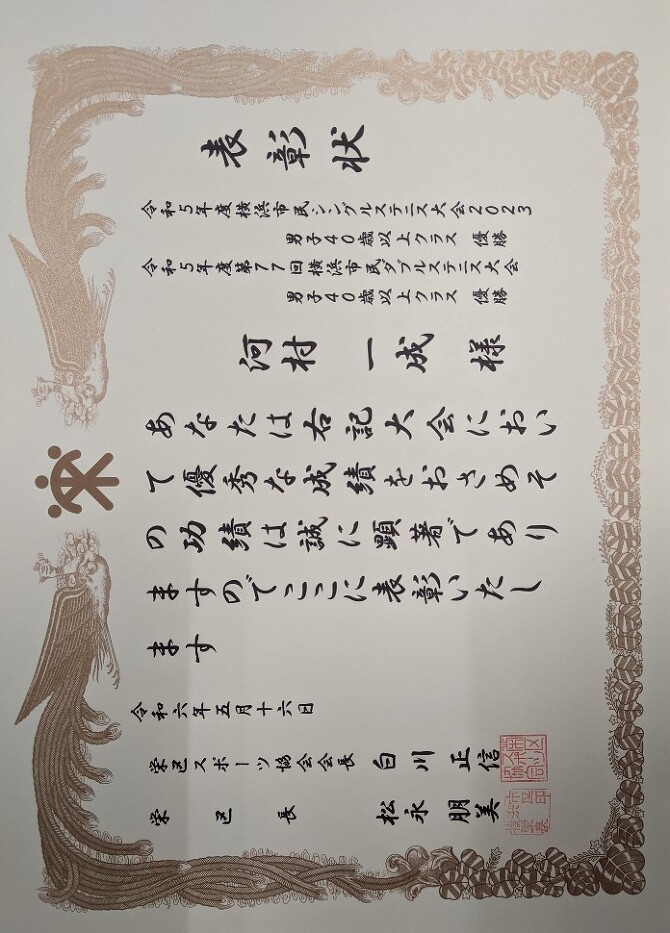 表彰状
令和5年度横浜市民シングルステニス大会2023
男子40歳以上クラス 優勝
令和5年度第77回横浜市民ダブルステニス大会
男子40歳以上クラス 優勝
河村 一成 様
あなたは右記大会におい
て優秀な成績をおさめそ
の功績は誠に顕著であり
ますのでここに表彰いたし
ます
令和六年五月十六日
栄区スポーツ協会会長 白川 正信
栄区長 松永 朋美